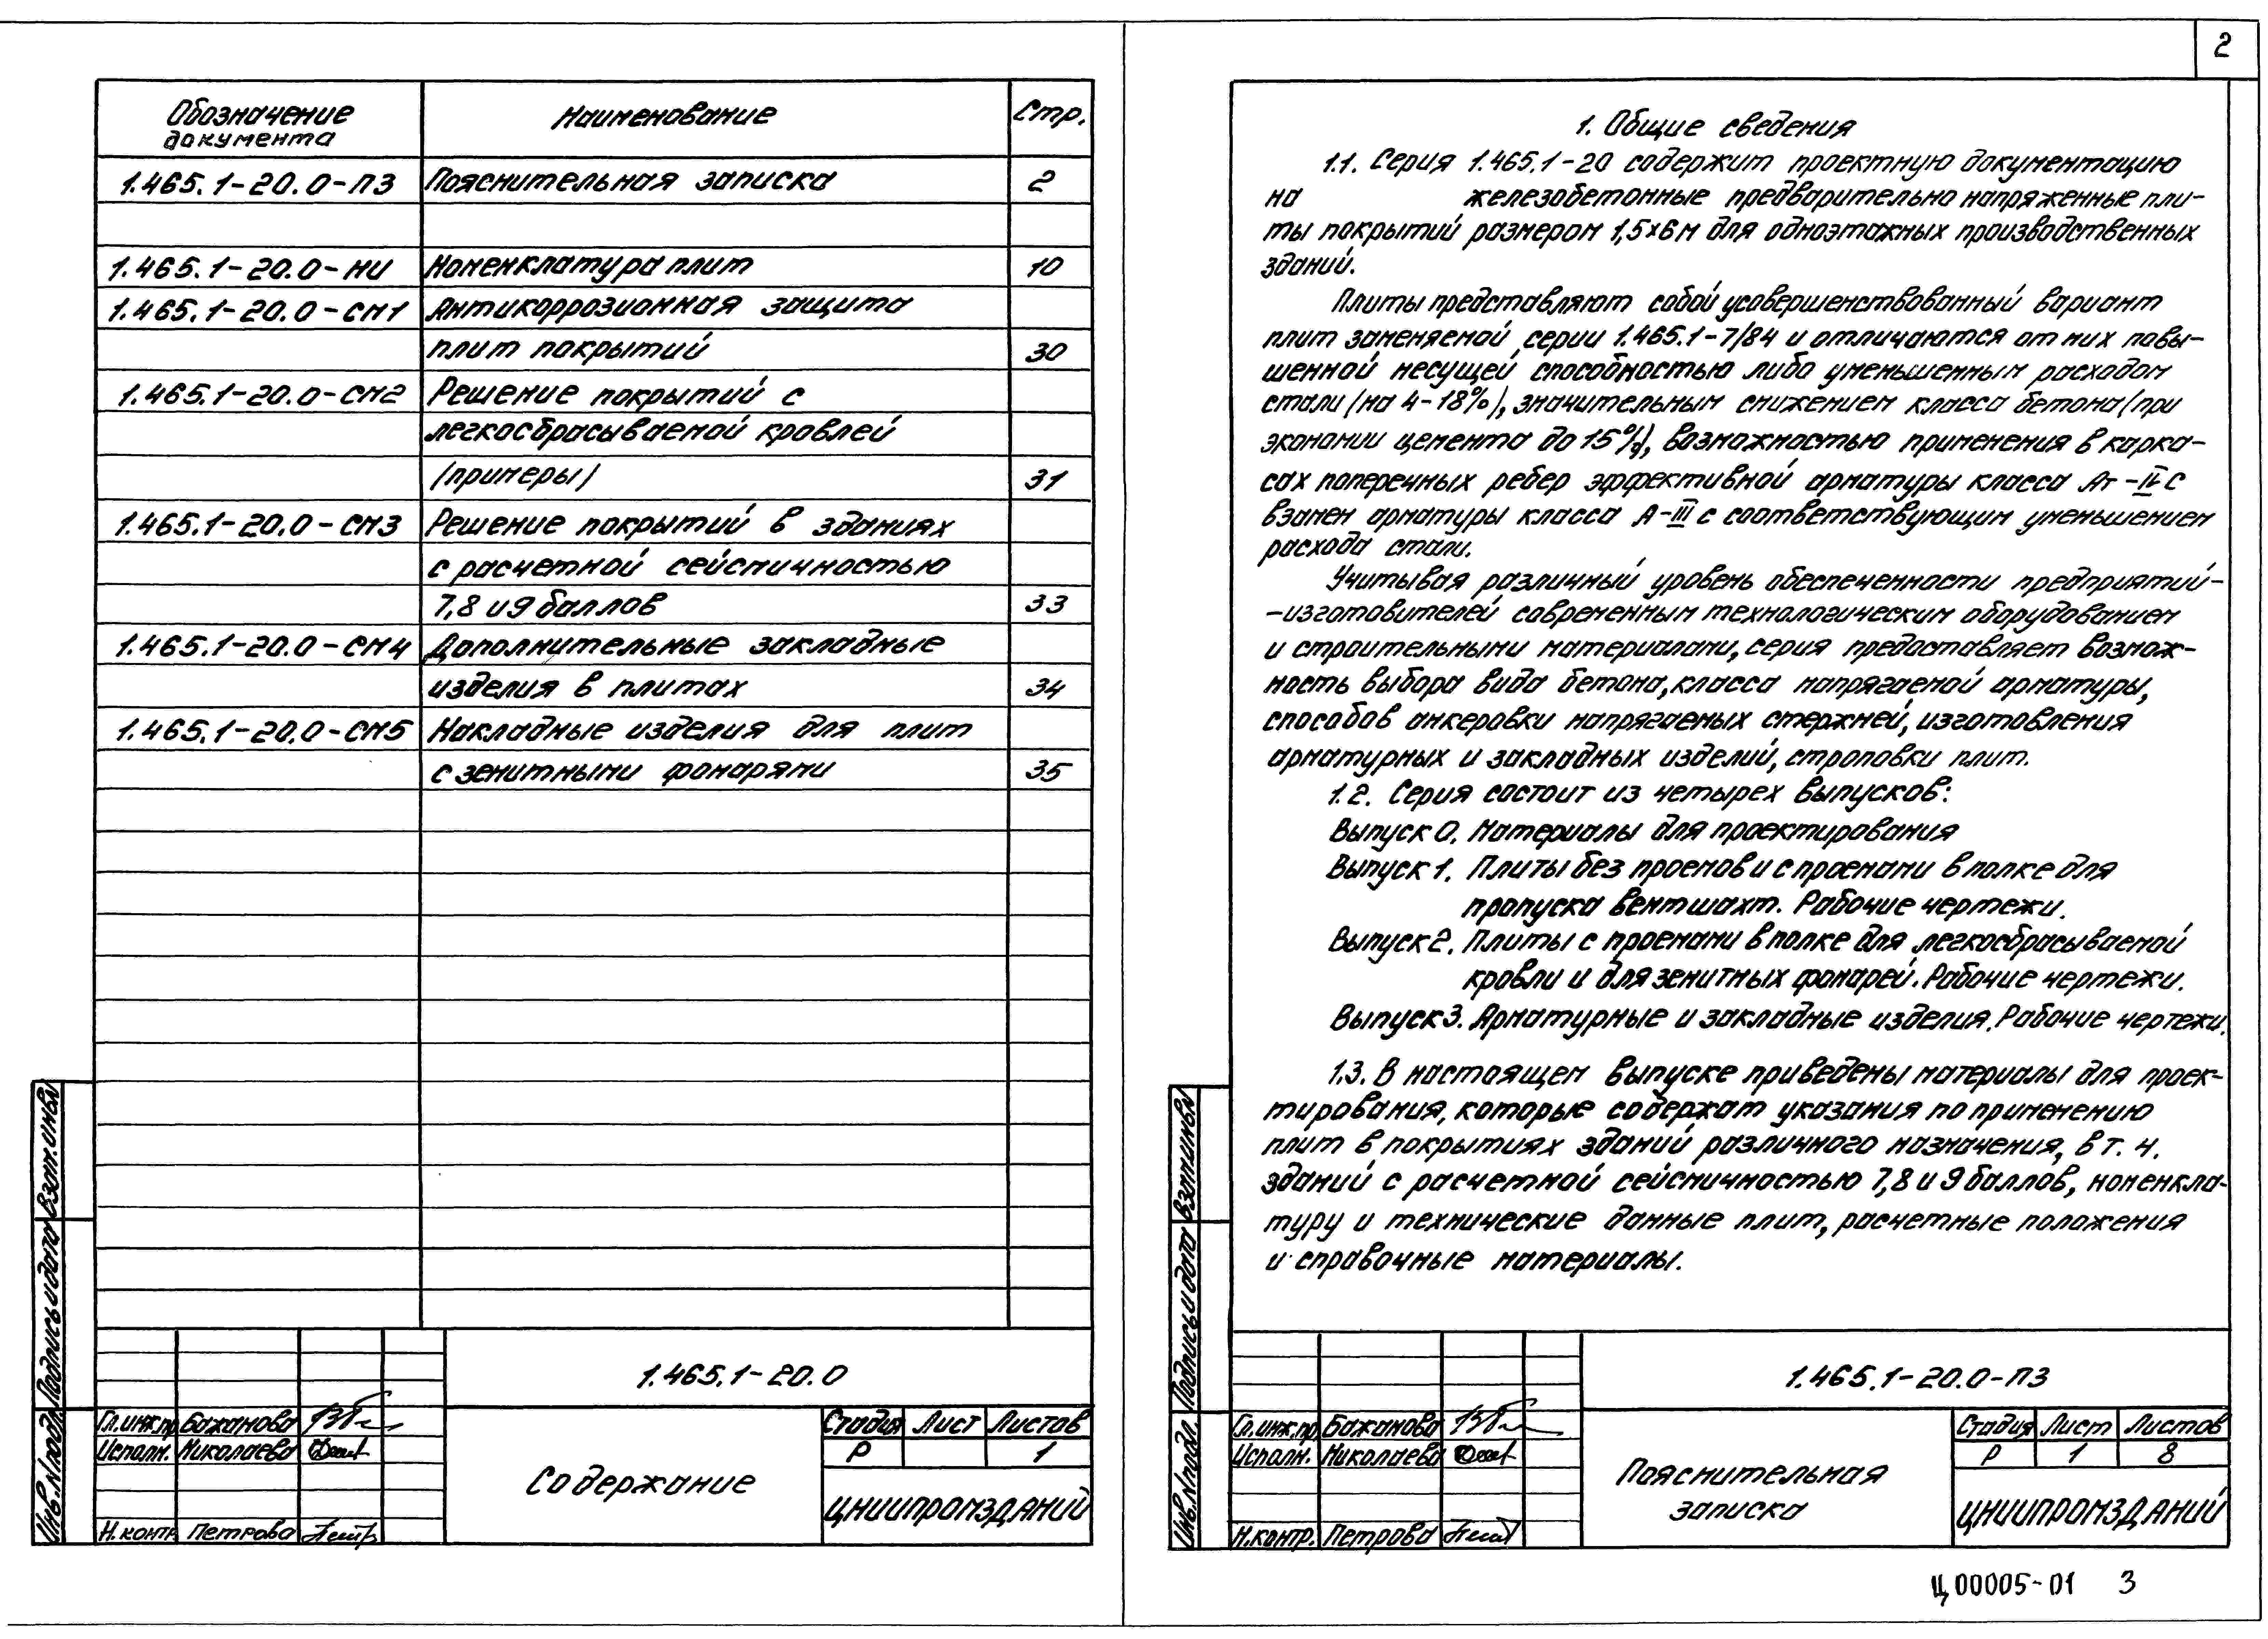 2
Обозначение документа Наименование Стр.
1.465.1-20.0-ПЗ Пояснительная записка 2
1.465.1-20.0-НИ Номенклатура плит 10
1.465.1-20.0-СМ1 Антикоррозионная защита
плит покрытий 30
1.465.1-20.0-СМ2 Решение покрытий с
легкосбрасываемой кровлей
(примеры) 31
1.465.1-20.0-СМ3 Решение покрытий в зданиях
с расчетной сейсмичностью
7,8 и 9 баллов 33
1.465.1-20.0-СМ4 Дополнительные закладные
изделия в плитах 34
1.465.1-20.0-СМ5 Накладные изделия для плит
с зенитными фонарями 35
Взам.инв.№
Подпись и дата
Инв.№подл.
1.465.1-20.0
Гл.инж.пр. Бажанова
Исполн. Николаева
Н.контр. Петрова
Содержание
Стадия Лист Листов
Р 1
ЦНИИПРОМЗДАНИЙ
1. Общие сведения
1.1. Серия 1.465.1-20 содержит проектную документацию
на железобетонные предварительно напряженные пли-
ты покрытий размером 1,5×6 м для одноэтажных производственных
зданий.
Плиты представляют собой усовершенствованный вариант
плит заменяемой серии 1.465.1-7/84 и отличаются от них повы-
шенной несущей способностью либо уменьшенным расходом
стали (на 4-18%), значительным снижением класса бетона (при
экономии цемента до 15%), возможностью применения в карка-
сах поперечных ребер эффективной арматуры класса Ат-IVС
взамен арматуры класса А-III с соответствующим уменьшением
расхода стали.
Учитывая различный уровень обеспеченности предприятий-
-изготовителей современным технологическим оборудованием
и строительными материалами, серия предоставляет возмож-
ность выбора вида бетона, класса напрягаемой арматуры,
способов анкеровки напрягаемых стержней, изготовления
арматурных и закладных изделий, строповки плит.
1.2. Серия состоит из четырех выпусков:
Выпуск 0. Материалы для проектирования
Выпуск 1. Плиты без проемов и с проемами в полке для
пропуска вентшахт. Рабочие чертежи.
Выпуск 2. Плиты с проемами в полке для легкосбрасываемой
кровли и для зенитных фонарей. Рабочие чертежи.
Выпуск 3. Арматурные и закладные изделия. Рабочие чертежи.
1.3. В настоящем выпуске приведены материалы для проек-
тирования, которые содержат указания по применению
плит в покрытиях зданий различного назначения, в т. ч.
зданий с расчетной сейсмичностью 7,8 и 9 баллов, номенкла-
туру и технические данные плит, расчетные положения
и справочные материалы.
Взам.инв.№
Подпись и дата
Инв.№подл.
1.465.1-20.0-ПЗ
Гл.инж.пр. Бажанова
Исполн. Николаева
Н.контр. Петрова
Пояснительная
записка
Стадия Лист Листов
Р 1 8
ЦНИИПРОМЗДАНИЙ
Ц00005-01 3